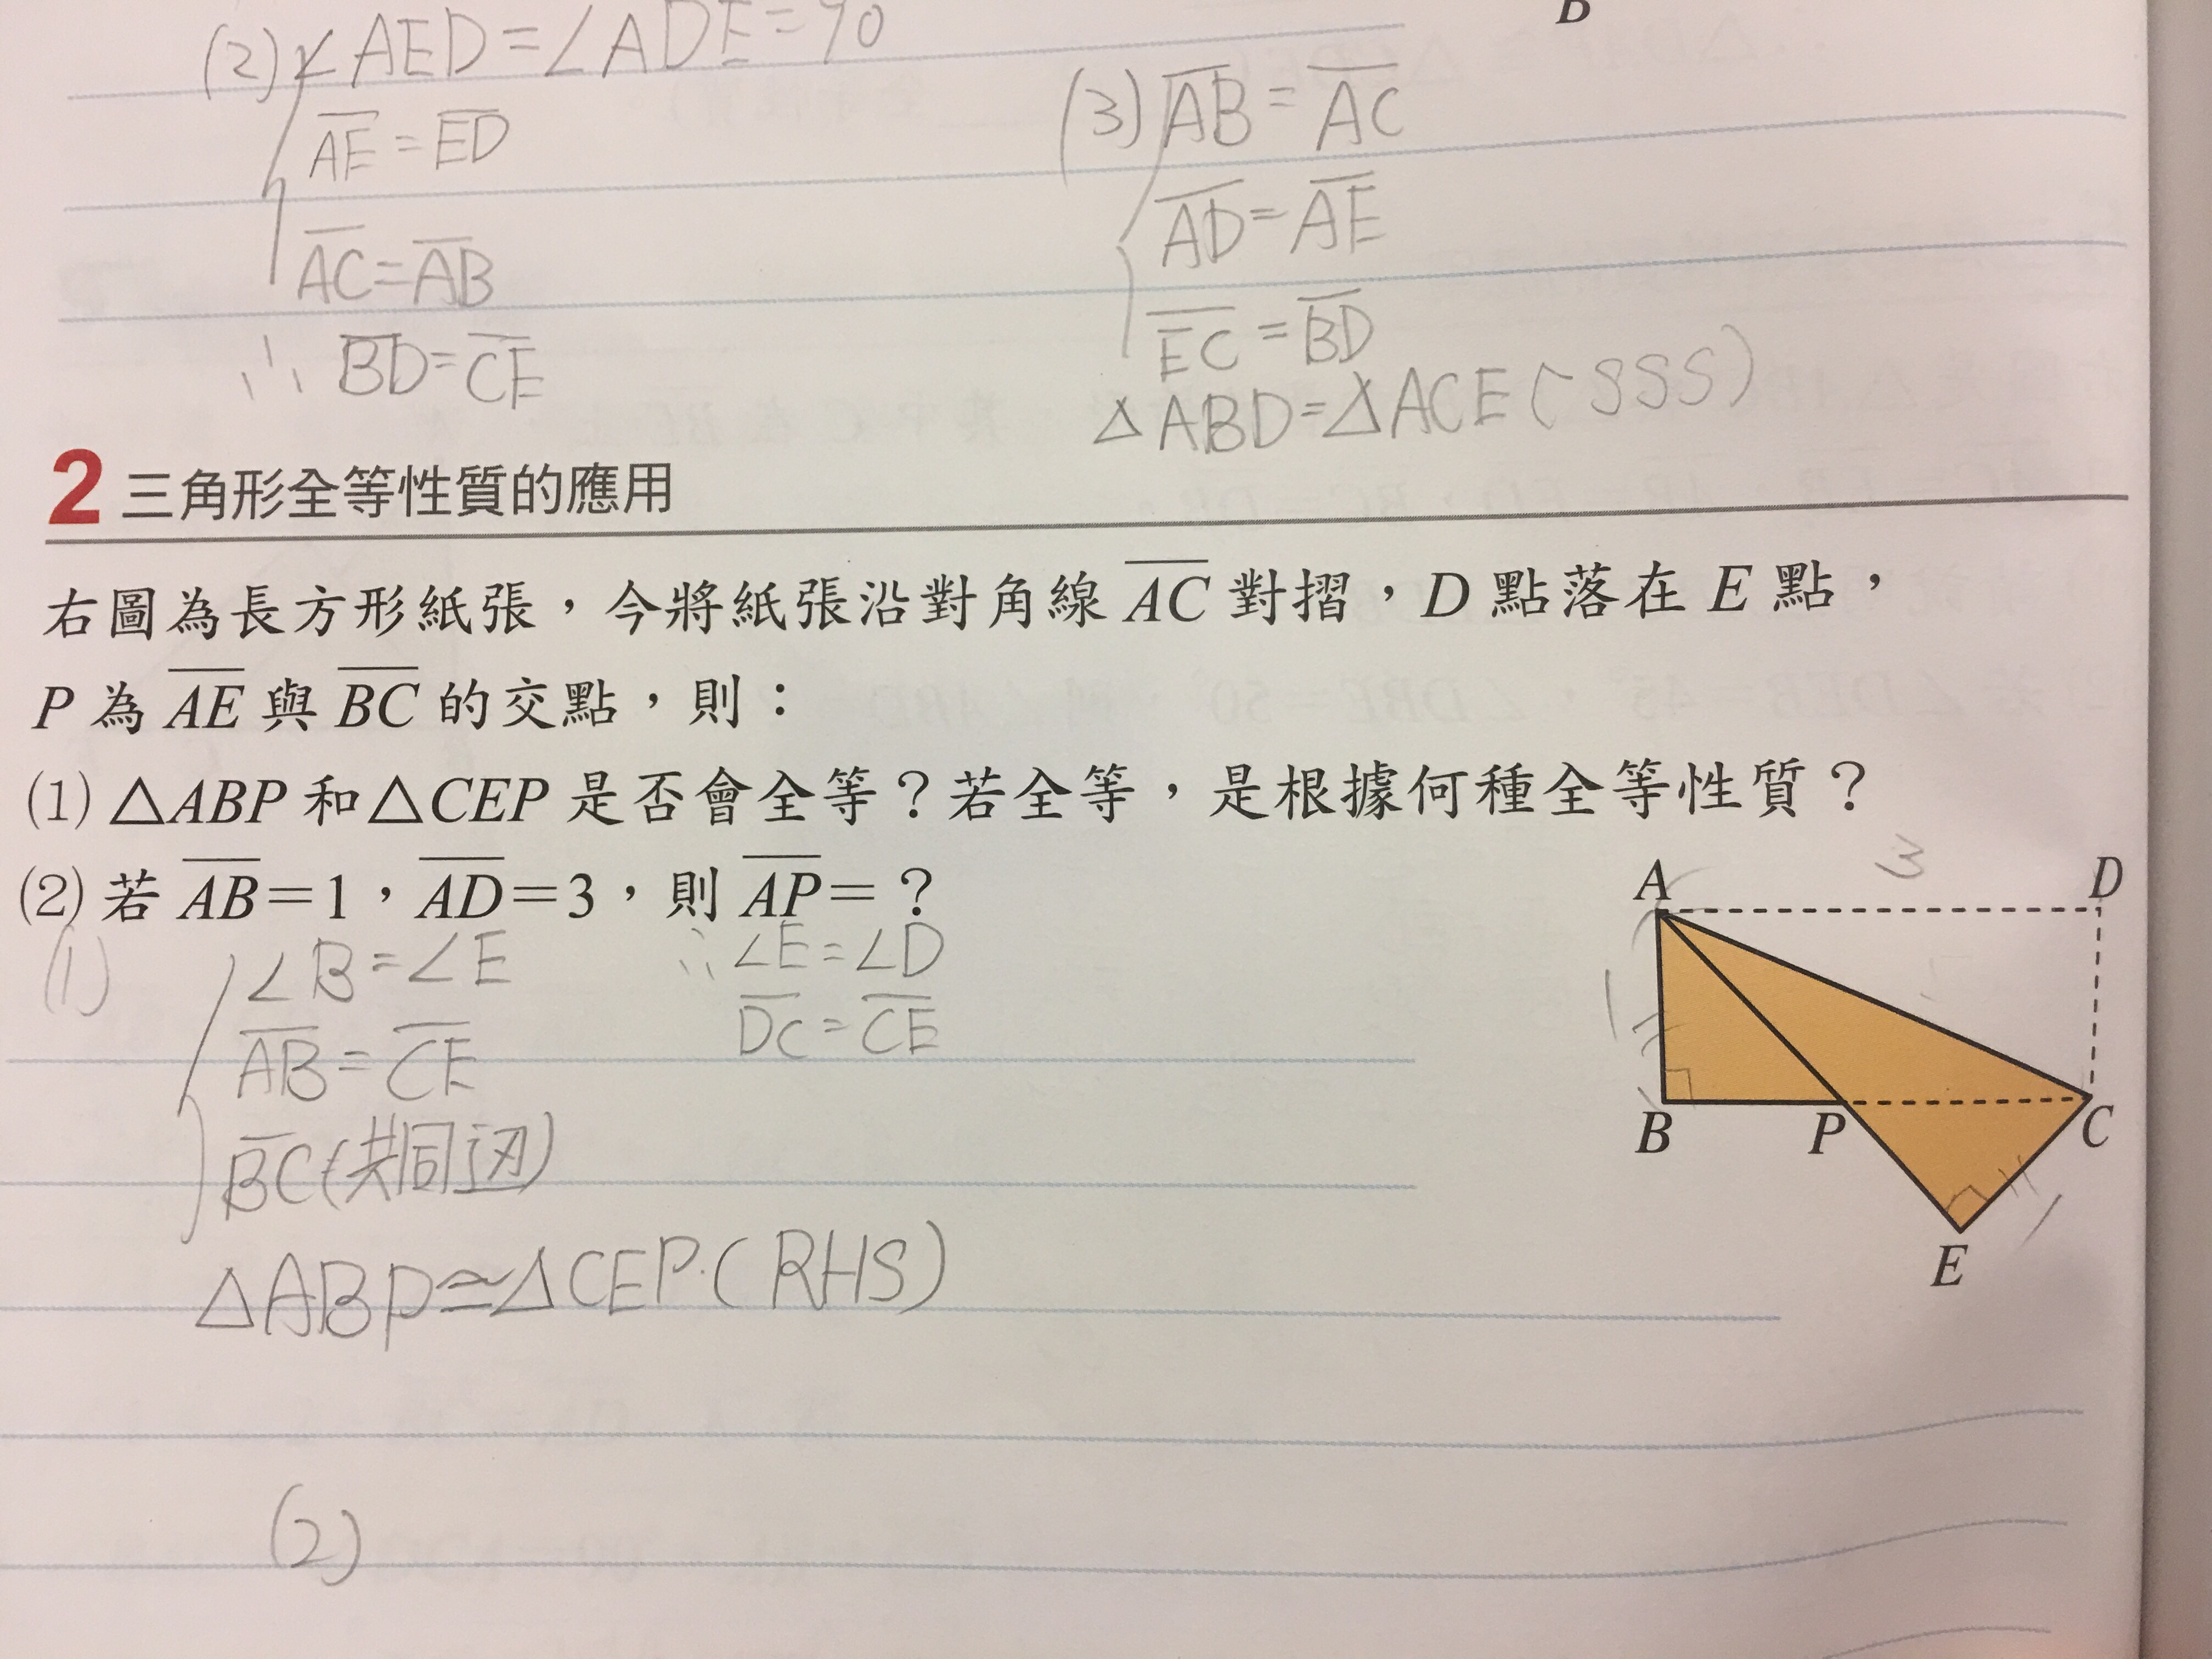 B
(2) ∠AED=∠ADE=90
AE=ED
AC=AB
∴ BD=CE
(3) AB=AC
AD=AE
EC=BD
△ABD=△ACE(SSS)
2 三角形全等性質的應用
右圖為長方形紙張，今將紙張沿對角線 AC 對摺，D 點落在 E 點，
P 為 AE 與 BC 的交點，則：
(1) △ABP 和△CEP 是否會全等？若全等，是根據何種全等性質？
(2) 若 AB=1，AD=3，則 AP=？
(1) ∠B=∠E
AB=CE
BC(共同边)
△ABP≅△CEP(RHS)
∴∠E=∠D
DC=CE
(2)
3
A D
1
B P C
1
E